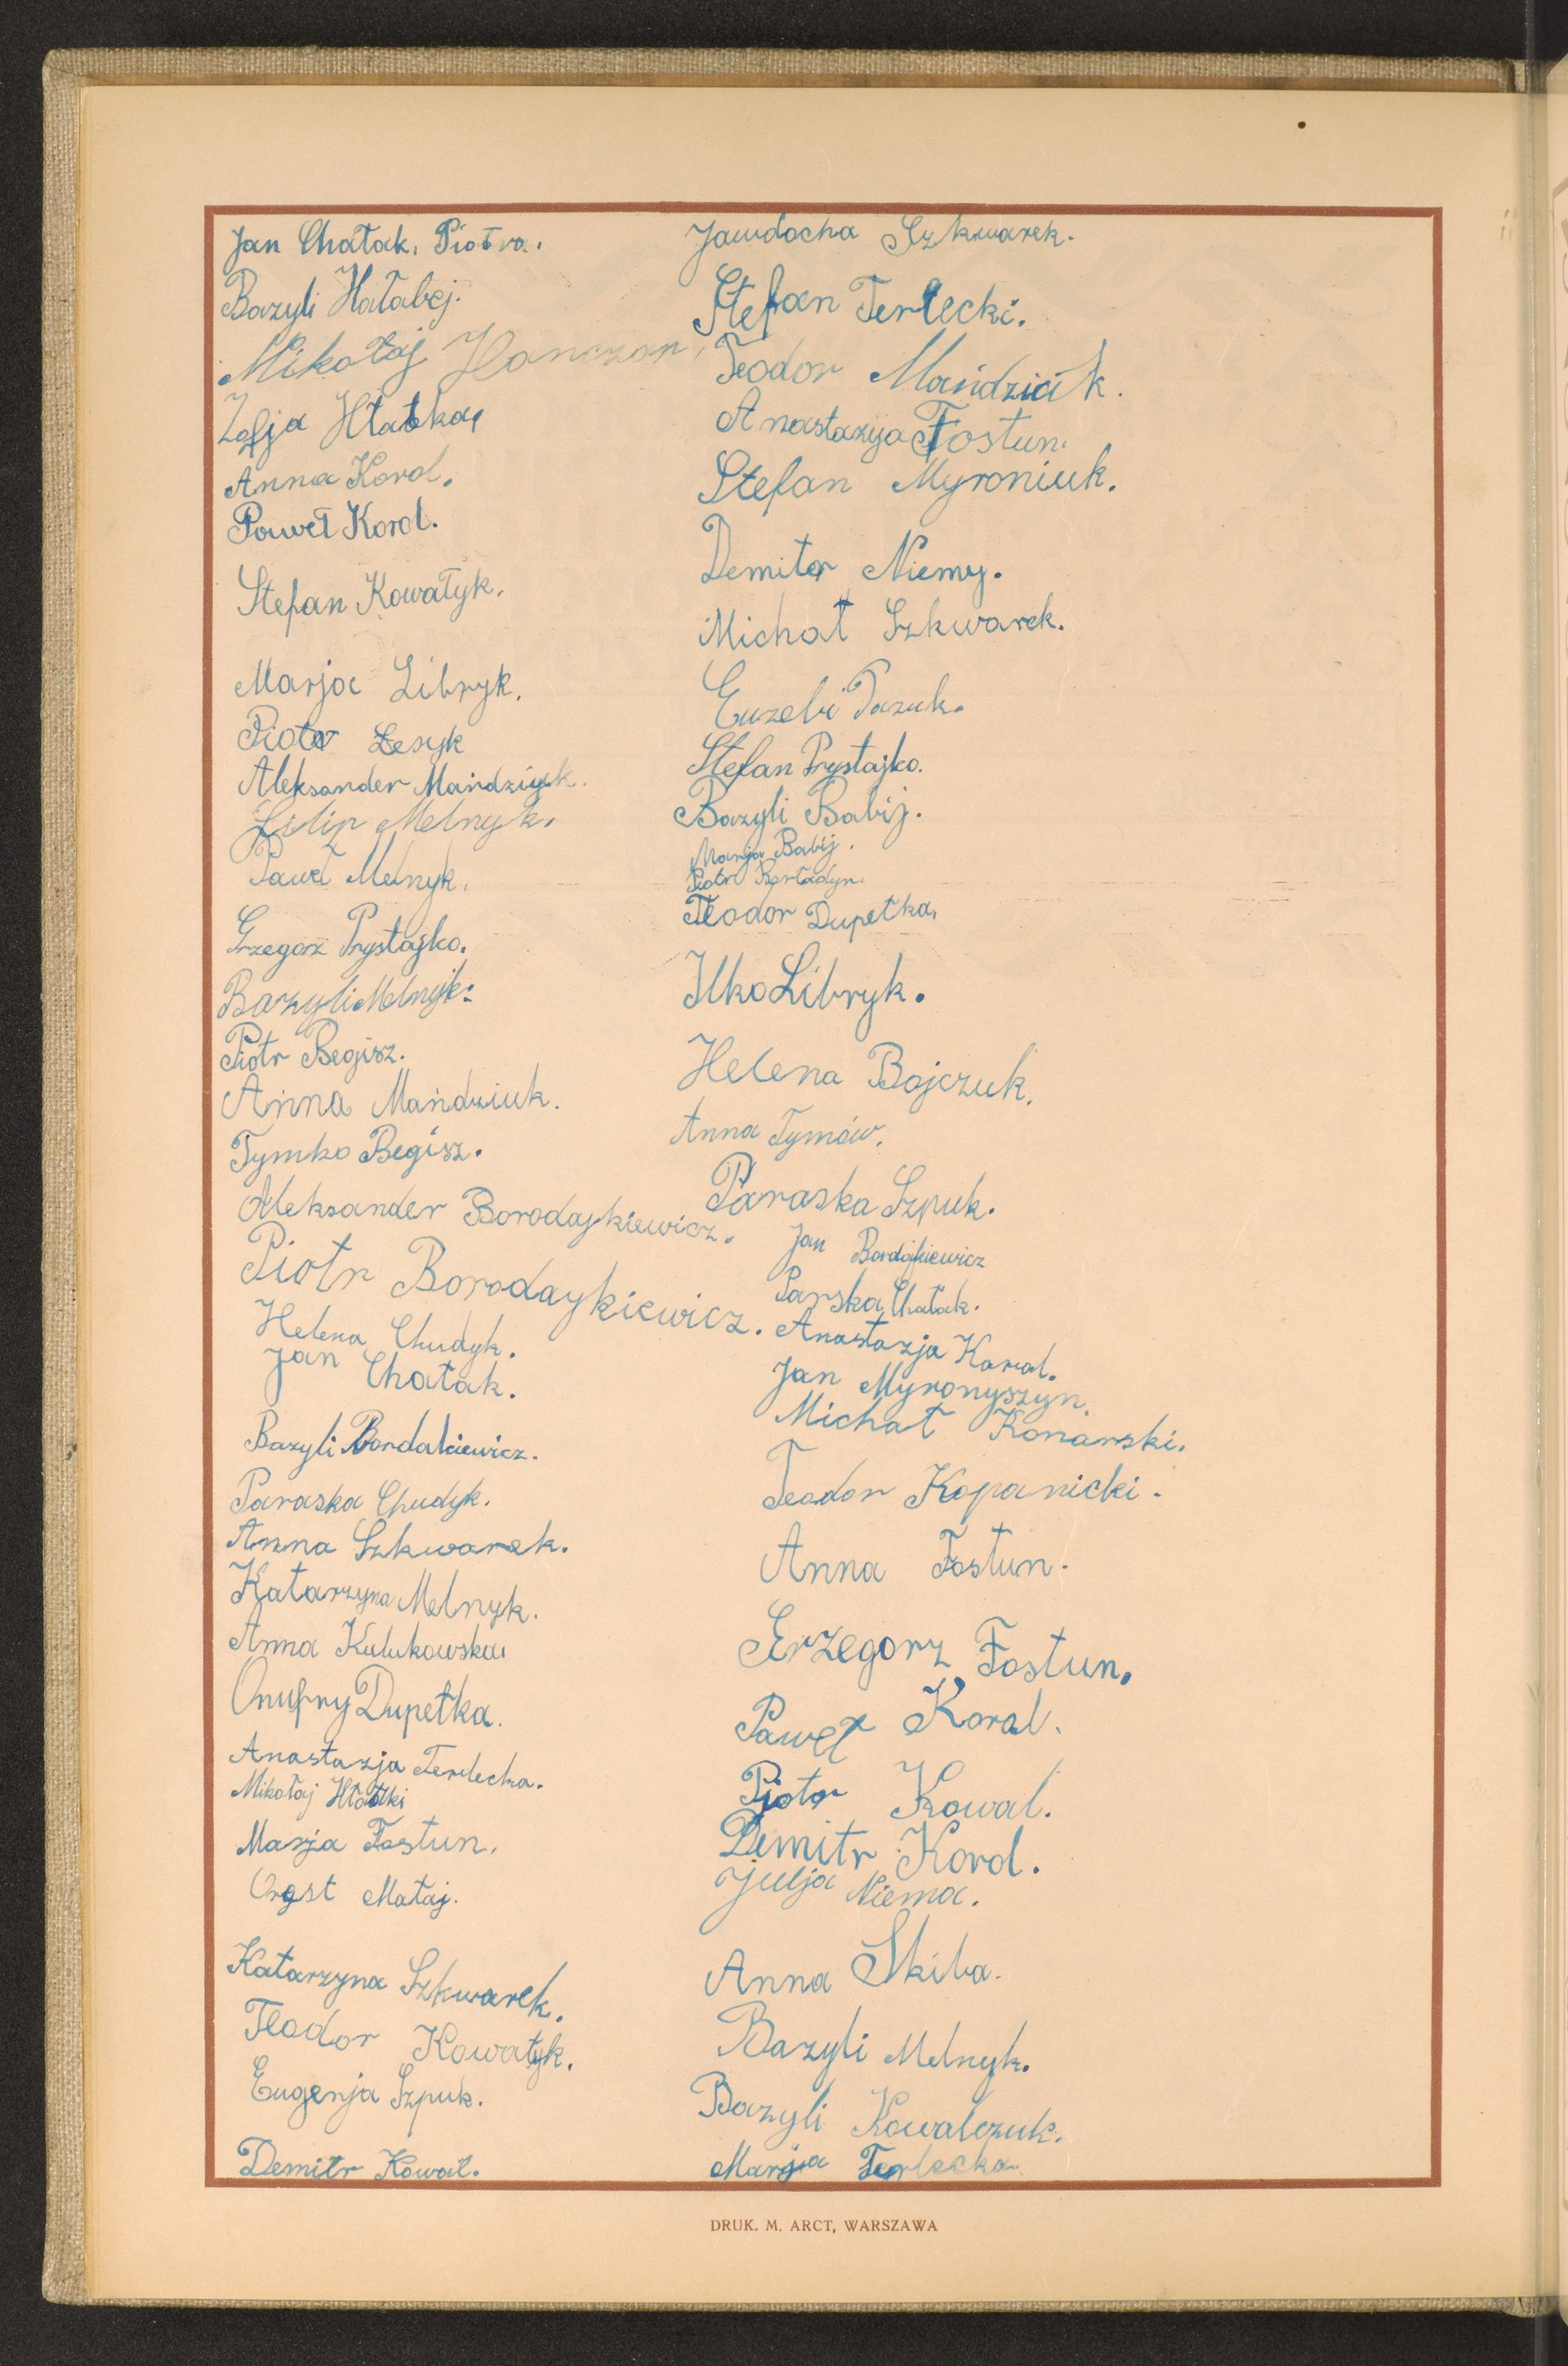 Jan Chałak, Piotra.
Bazyli Hałabej.
Mikołaj Hanczar,
Zofja Hładka,
Anna Korol.
Paweł Korol.
Stefan Kowałyk.
Marja Libryk.
Piotr Łesyk
Aleksander Mańdziuk.
Filip Melnyk.
Paweł Melnyk.
Grzegorz Prystajko.
Bazyli Melnyk.
Piotr Begisz.
Anna Mańdziuk.
Tymko Begisz.
Aleksander Borodajkiewicz.
Piotr Borodaykiewicz.
Helena Chudyk.
Jan Chałak.
Bazyli Bordakiewicz.
Paraska Chudyk.
Anna Szkwarek.
Katarzyna Melnyk.
Anna Kulukowska
Onufry Dupełka.
Anastazja Terlecka.
Mikołaj Hładki
Marja Fostun.
Orest Małaj.
Katarzyna Szkwarek.
Teodor Kowałyk.
Eugenja Szpuk.
Demitr Kowal.
Jawdocha Szkwarek.
Stefan Terlecki.
Teodor Mańdziak.
Anastazyja Fostun.
Stefan Myroniuk.
Demiter Niemy.
Michał Szkwarek.
Euzebi Pazuk.
Stefan Prystajko.
Bazyli Babij.
Marja Babij.
Piotr
Teodor Dupełka,
Ilko Libryk.
Helena Bojczuk.
Anna Tymów.
Paraska Szpuk.
Jan Bordajkiewicz
Parska Chałak.
Anastazja Karol.
Jan Myronyszyn.
Michał Konarski.
Teodor Kopanicki.
Anna Fostun.
Grzegorz Fostun.
Paweł Koral.
Piotr Kowal.
Demitr Korol.
Julja Niema.
Anna Skiba.
Bazyli Melnyk.
Bazyli Kowalczuk.
Marja Terlecka
DRUK. M. ARCT, WARSZAWA